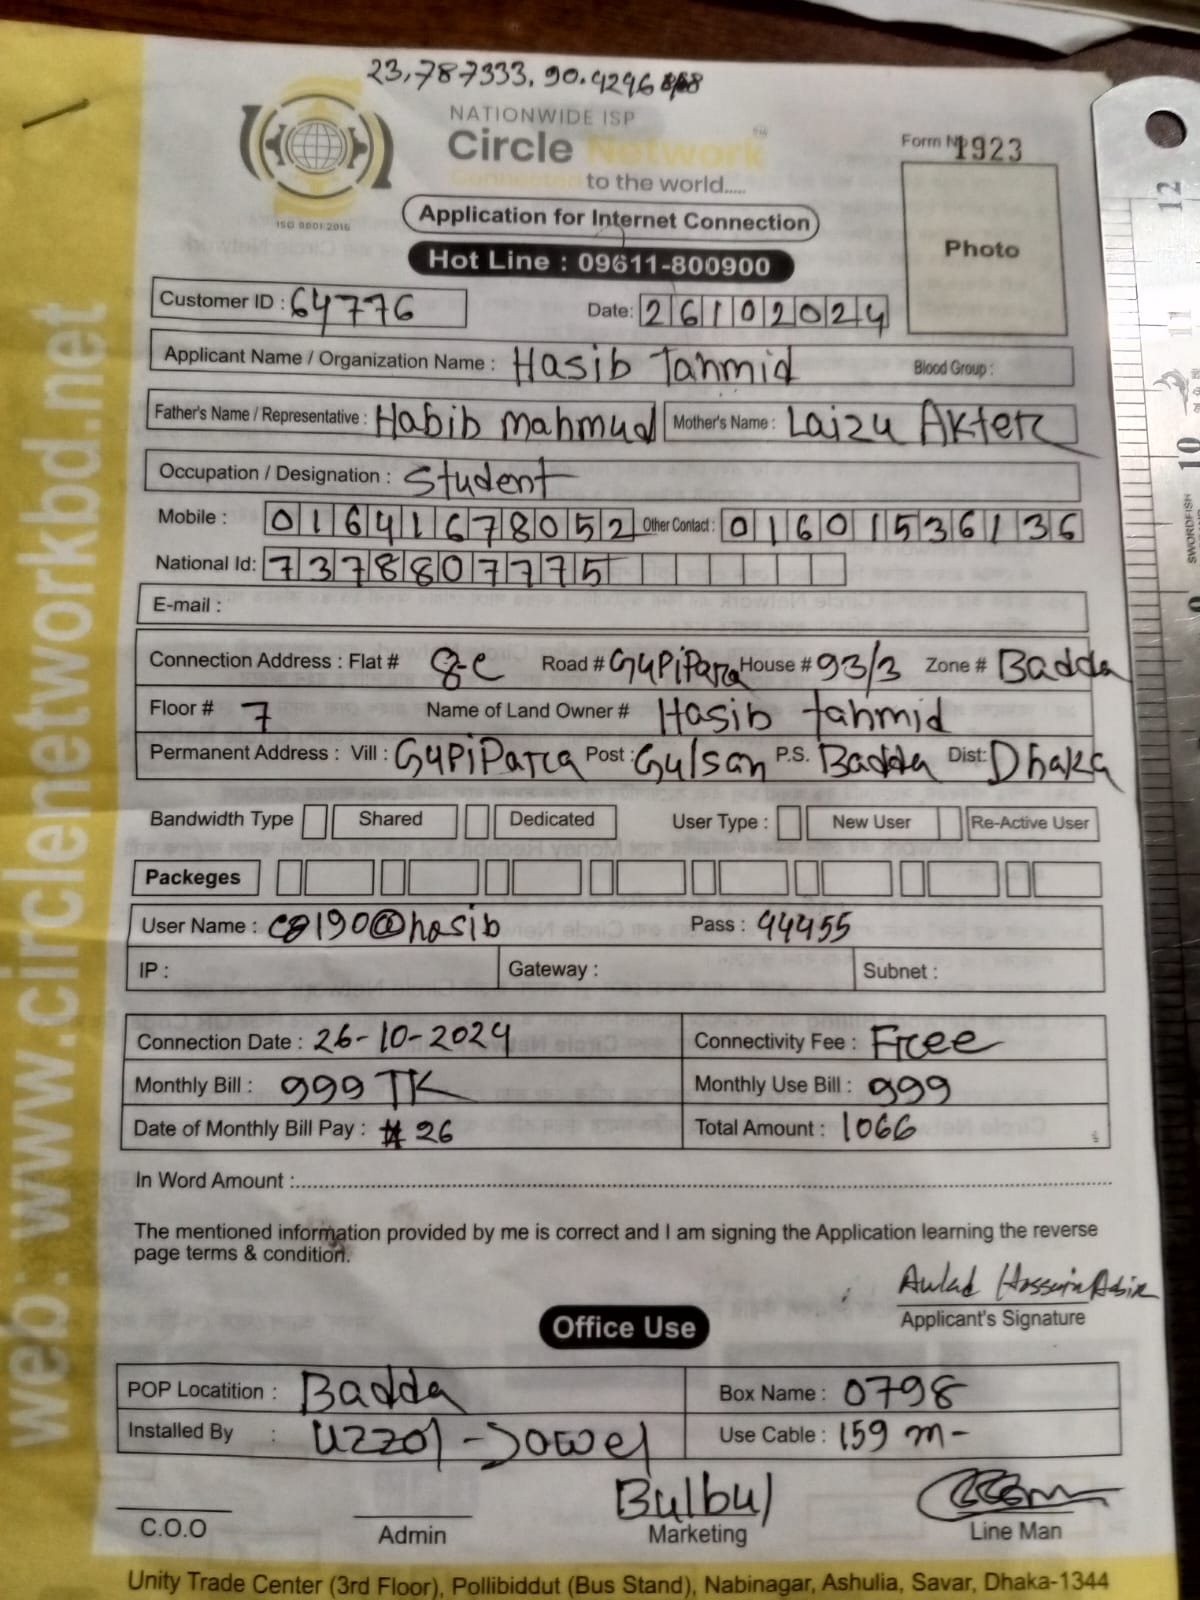 23,787333, 90.4296
NATIONWIDE ISP
Circle Network
Connected to the world.....
ISO 9001:2015
Form No 1923
Photo
Application for Internet Connection
Hot Line : 09611-800900
Customer ID : 64776 Date: 26102024
Applicant Name / Organization Name : Hasib Tahmid Blood Group :
Father's Name / Representative : Habib Mahmud Mother's Name : Laizu Akter
Occupation / Designation : Student
Mobile : 01641678052 Other Contact : 01601536136
National Id: 7378807775
E-mail :
Connection Address : Flat # 8-C Road # GupiPara House # 93/3 Zone # Badda
Floor # 7 Name of Land Owner # Hasib tahmid
Permanent Address : Vill : GupiPara Post : Gulsan P.S. Badda Dist: Dhaka
Bandwidth Type Shared Dedicated User Type : New User Re-Active User
Packeges
User Name : c8190@hasib Pass : 44455
IP : Gateway : Subnet :
Connection Date : 26-10-2024 Connectivity Fee : Free
Monthly Bill : 999 TK Monthly Use Bill : 999
Date of Monthly Bill Pay : 26 Total Amount : 1066
In Word Amount :
The mentioned information provided by me is correct and I am signing the Application learning the reverse
page terms & condition.
Aulad Hossain Abir
Applicant's Signature
Office Use
POP Locatition : Badda Box Name : 0798
Installed By : Uzzol - Sowel Use Cable : 159 m-
Bulbul
C.O.O Admin Marketing Line Man
Unity Trade Center (3rd Floor), Pollibiddut (Bus Stand), Nabinagar, Ashulia, Savar, Dhaka-1344
web: www.circlenetworkbd.net
12
11
10
9
SWORDFISH